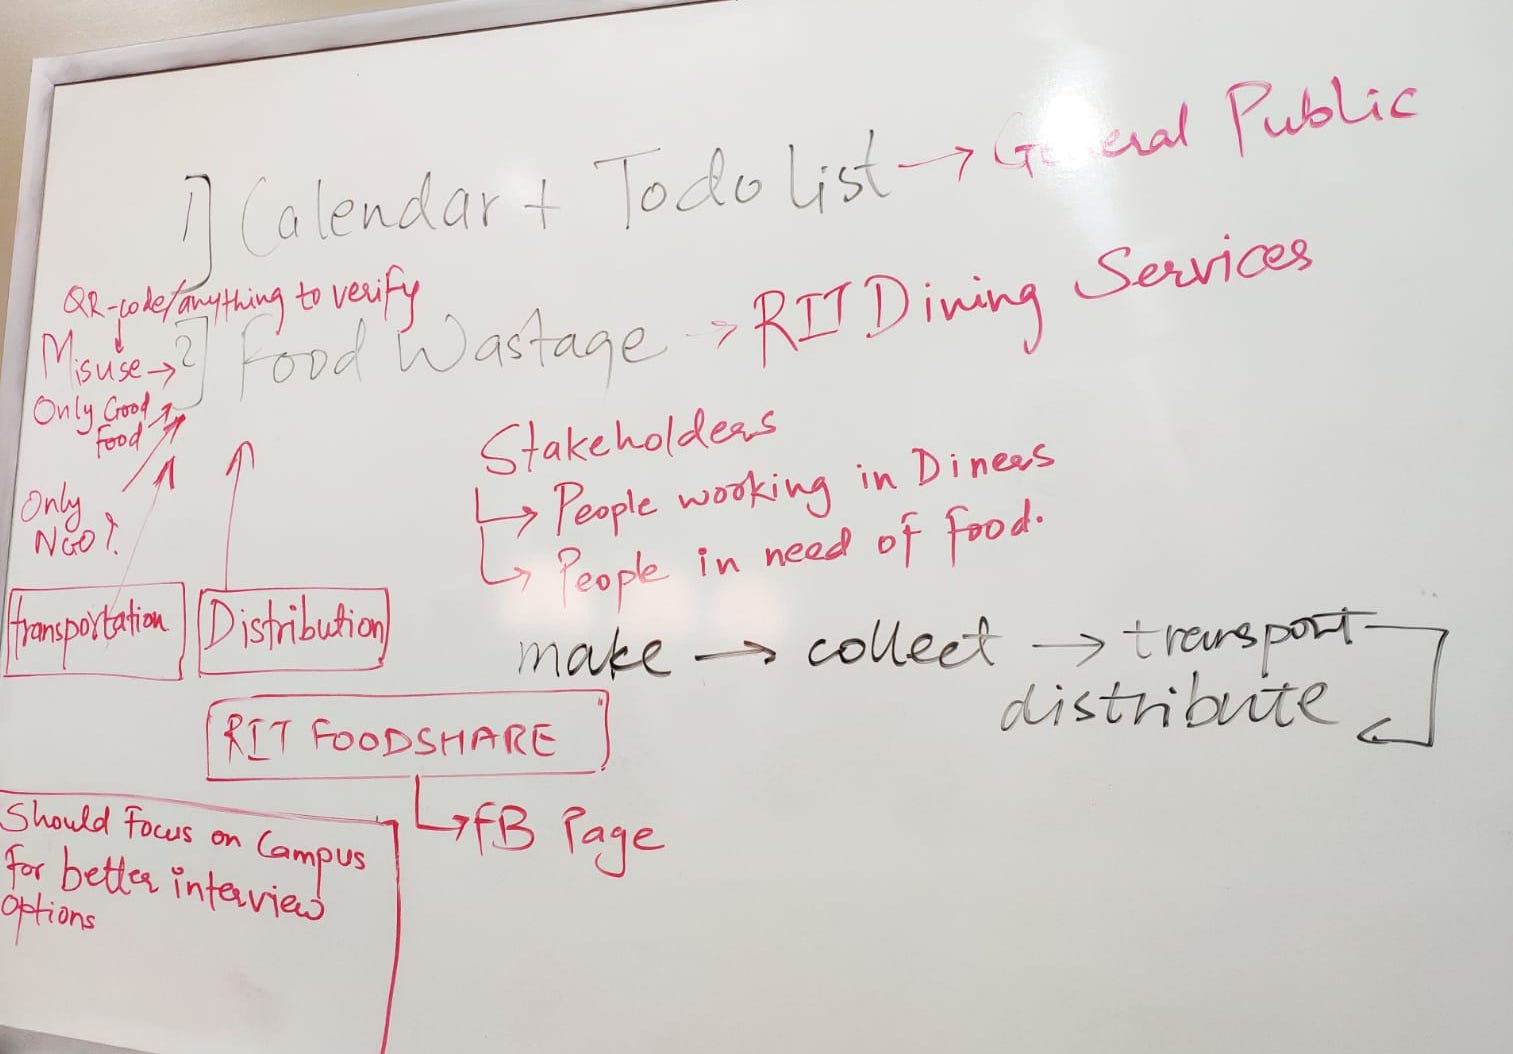 1] Calendar + Todo list → General Public
QR-code/anything to verify
Misuse → 2] Food Wastage → RIT Dining Services
Only Good
Food
Only
NGO?
Stakeholders
↳ People working in Diners
↳ People in need of food.
transportation
Distribution
make → collect → transport
distribute
RIT FOODSHARE
↳ FB Page
Should Focus on Campus
for better interview
options